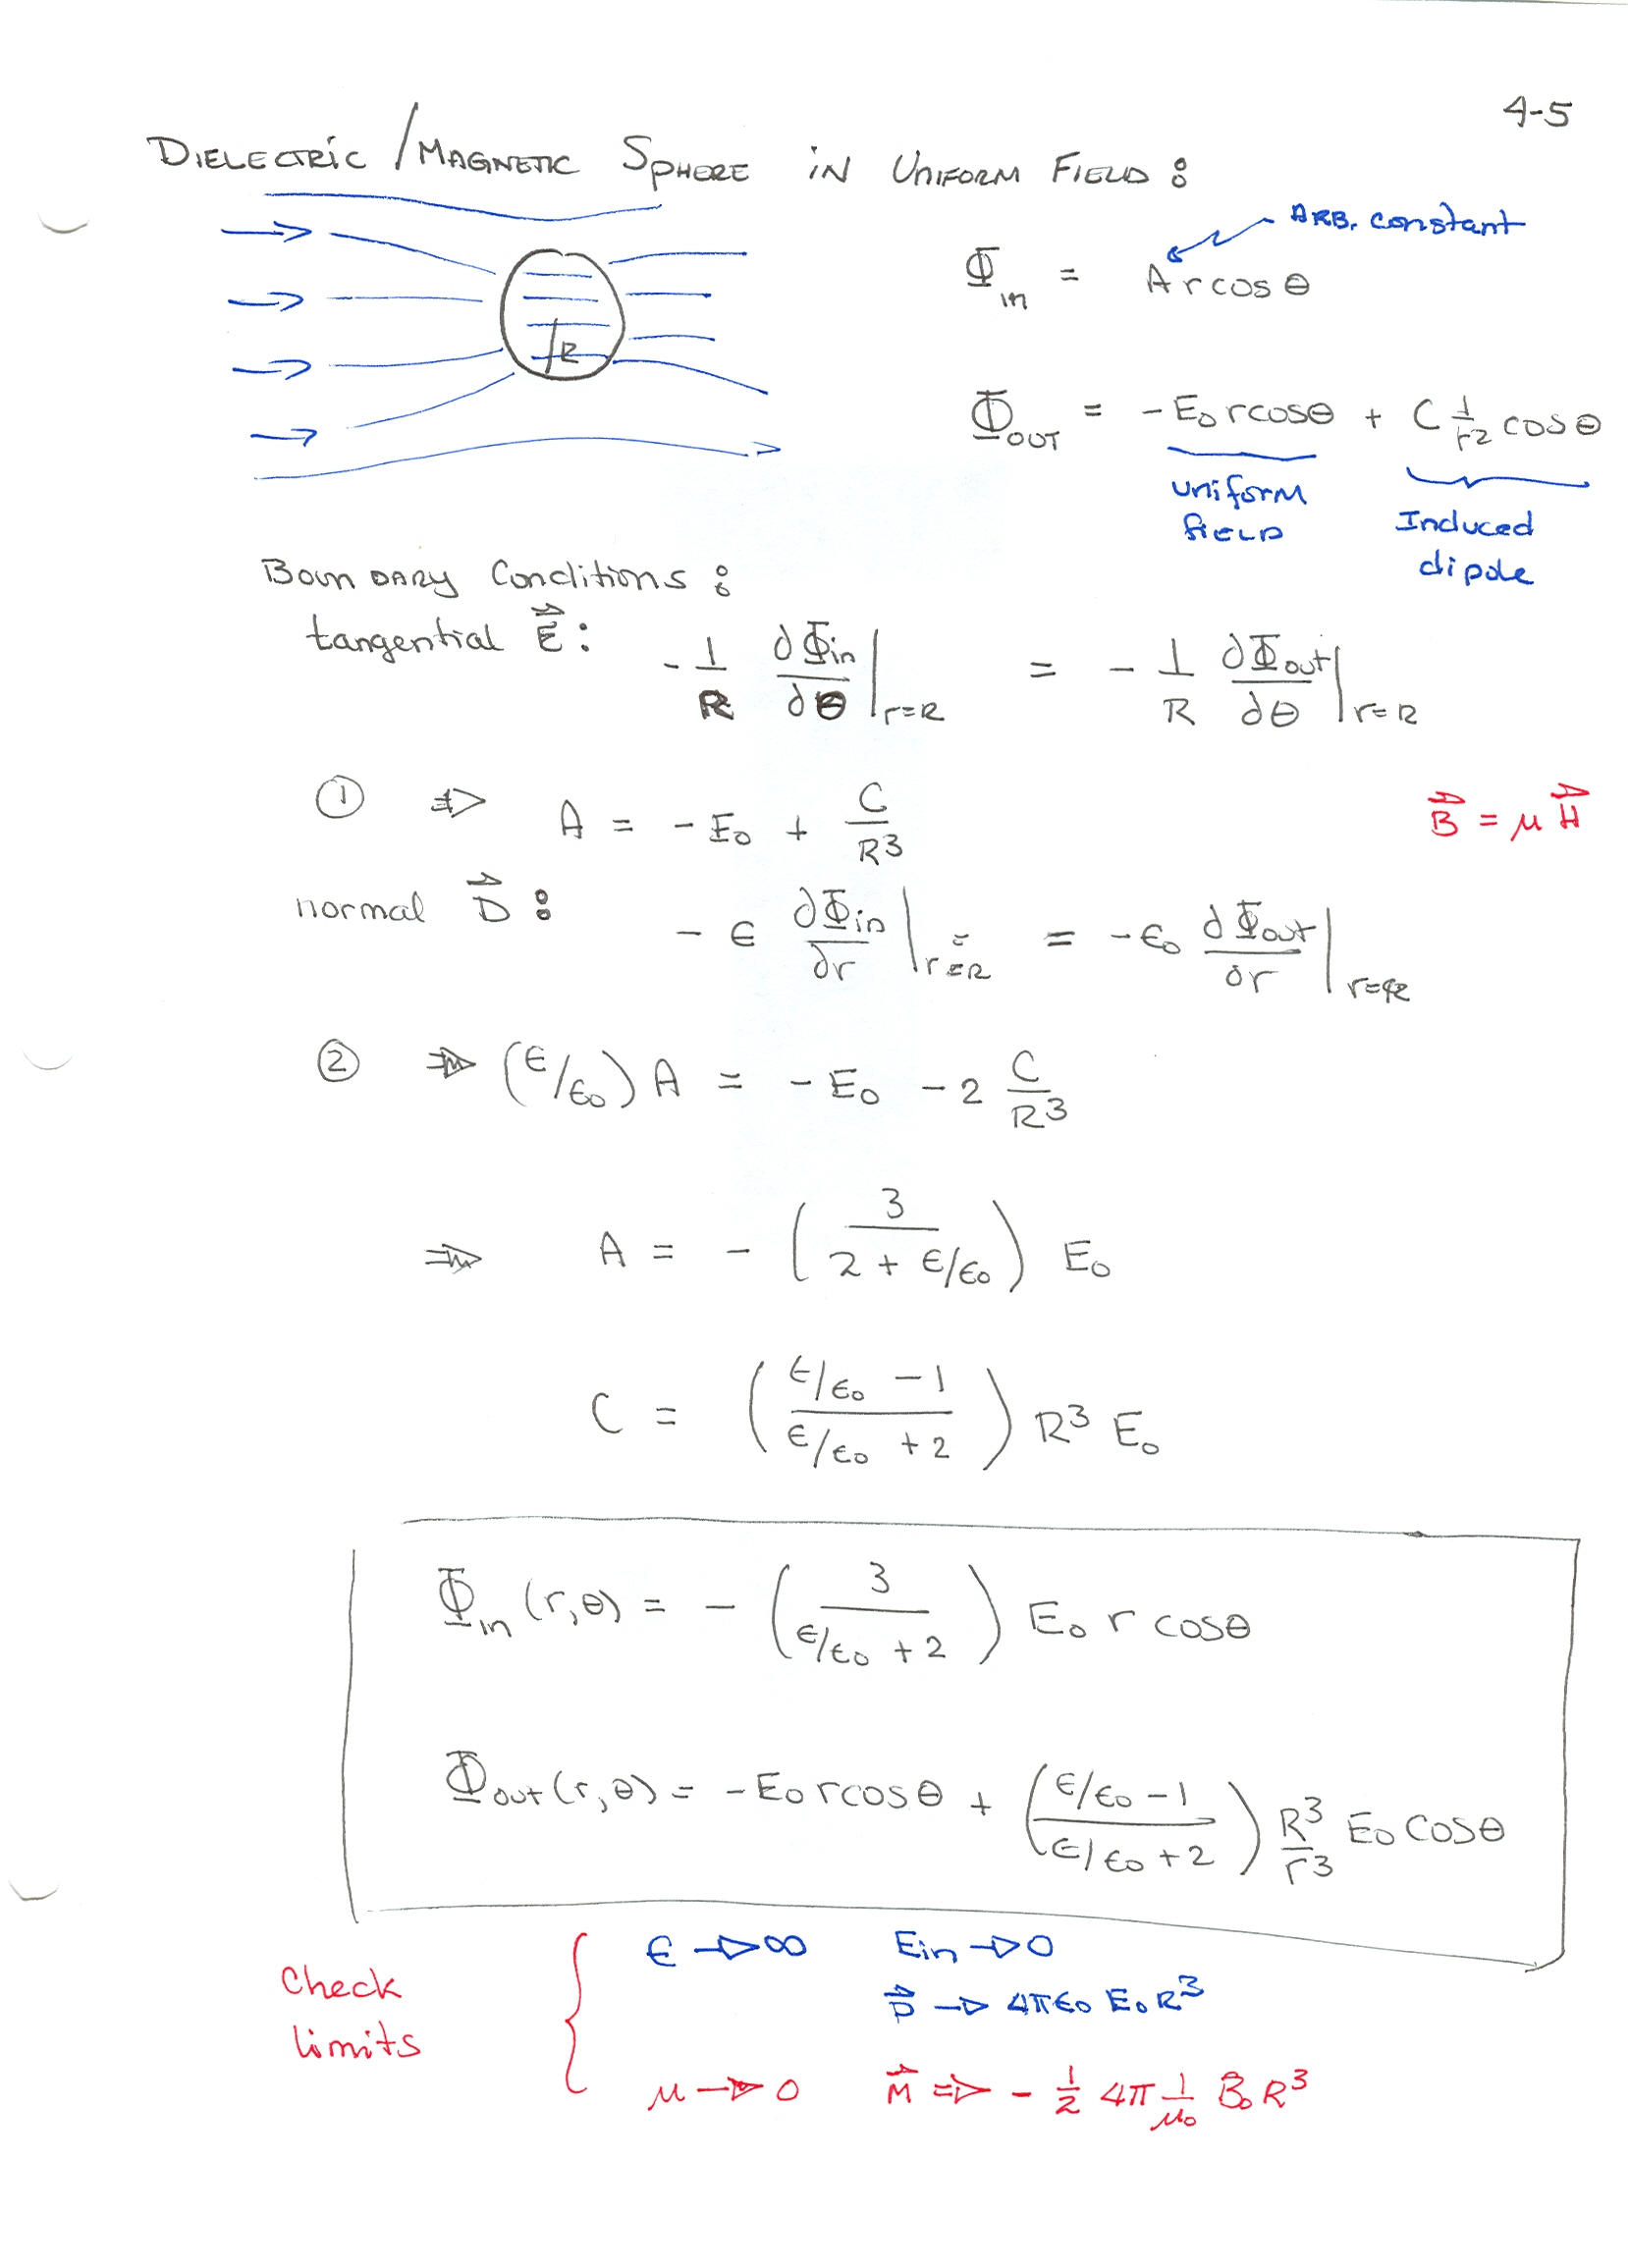 4-5
DIELECTRIC / MAGNETIC SPHERE IN UNIFORM FIELD :
ARB. constant
Φ_in = A r cos θ
R
Φ_OUT = - E_0 r cos θ + C 1/r^2 cos θ
uniform field
Induced dipole
BOUNDARY Conditions :
tangential E⃗ : - 1/R ∂Φ_in/∂θ |_r=R = - 1/R ∂Φ_out/∂θ |_r=R
① ⇒ A = - E_0 + C/R^3
B⃗ = μ H⃗
normal D⃗ : - ϵ ∂Φ_in/∂r |_r=R = - ϵ_0 ∂Φ_out/∂r |_r=R
② ⇒ (ϵ/ϵ_0) A = - E_0 - 2 C/R^3
⇒ A = - ( 3 / (2 + ϵ/ϵ_0) ) E_0
C = ( (ϵ/ϵ_0 - 1) / (ϵ/ϵ_0 + 2) ) R^3 E_0
Φ_in (r,θ) = - ( 3 / (ϵ/ϵ_0 + 2) ) E_0 r cos θ
Φ_out (r,θ) = - E_0 r cos θ + ( (ϵ/ϵ_0 - 1) / (ϵ/ϵ_0 + 2) ) R^3/r^3 E_0 cos θ
Check limits
ϵ → ∞ E_in → 0
p⃗ → 4πϵ_0 E_0 R^3
μ → 0 M⃗ ⇒ - 1/2 4π 1/μ_0 B_0 R^3